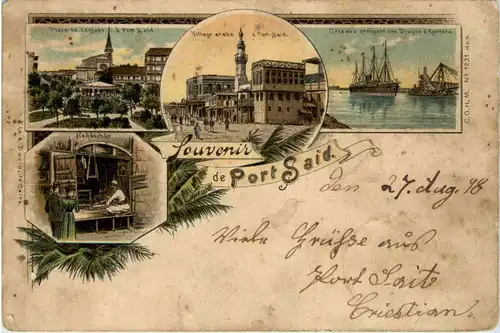 Place de Lesseps à Port Said.
Village arabe à Port-Said.
Orlando croisant une Drague à Kantara
C.O.H.M. No 1231 dep.
Souvenir
de Port Said.
Den 27 Aug. 98
Viele Grüße aus
Port Sait
Cristian.